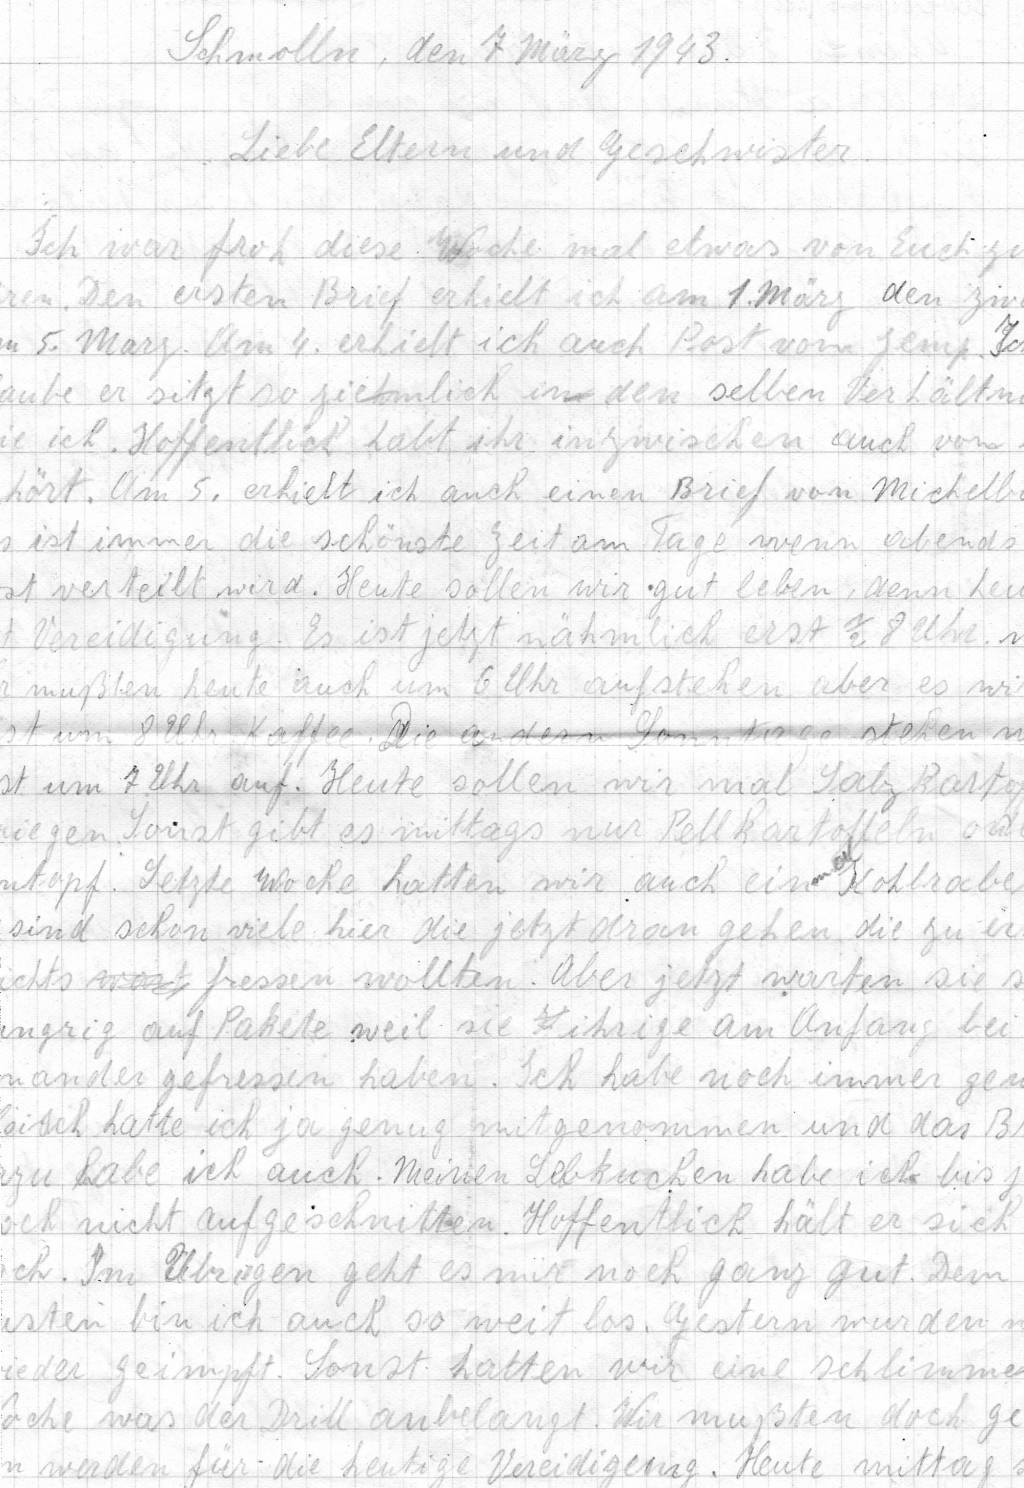 Schmolln, den 7 März 1943.
Liebe Eltern und Geschwister.
Ich war froh diese Woche mal etwas von Euch zu
ren. Den ersten Brief erhielt ich am 1. März den zwe
m 5. Marz. Am 4. erhielt ich auch Post vom Ich
aube er sitzt so ziehmlich in den selben Verhältn
ie ich. Hoffentlich habt ihr inzwischen auch von
hört. Am 5. erhielt ich auch einen Brief von Michelb
s ist immer die schönste Zeit am Tage wenn abends
st verteilt wird. Heute sollen wir gut leben, denn heu
t Vereidigung. Es ist jetzt nähmlich erst 8 Uhr.
r mußten heute auch um 6 Uhr aufstehen aber es wi
st um 8 Uhr Kaffee. Die andern Sonntage stehen
st um 7 Uhr auf. Heute sollen wir mal Salzkartof
riegen. Sonst gibt es mittags nur Pellkartoffeln od
ntopf. Letzte Woche hatten wir auch ein mal Kohlrabe
sind schon viele hier die jetzt dran gehen die zu er
ichts fressen wollten. Aber jetzt warten sie s
ungrig auf Pakete weil sie ihrige am Anfang bei
nander gefressen haben. Ich habe noch immer gen
leisch hatte ich ja genug mitgenommen und das B
zu habe ich auch. Meinen Lebkuchen habe ich bis j
och nicht aufgeschnitten. Hoffentlich hält er sich
och. Im Übrigen geht es mir noch ganz gut. Dem
usten bin ich auch so weit los. Gestern wurden
ieder geimpft. Sonst hatten wir eine schlimme
oche was der Drill anbelangt. Wir mußten doch ge
n werden für die heutige Vereidigung. Heute mittag s